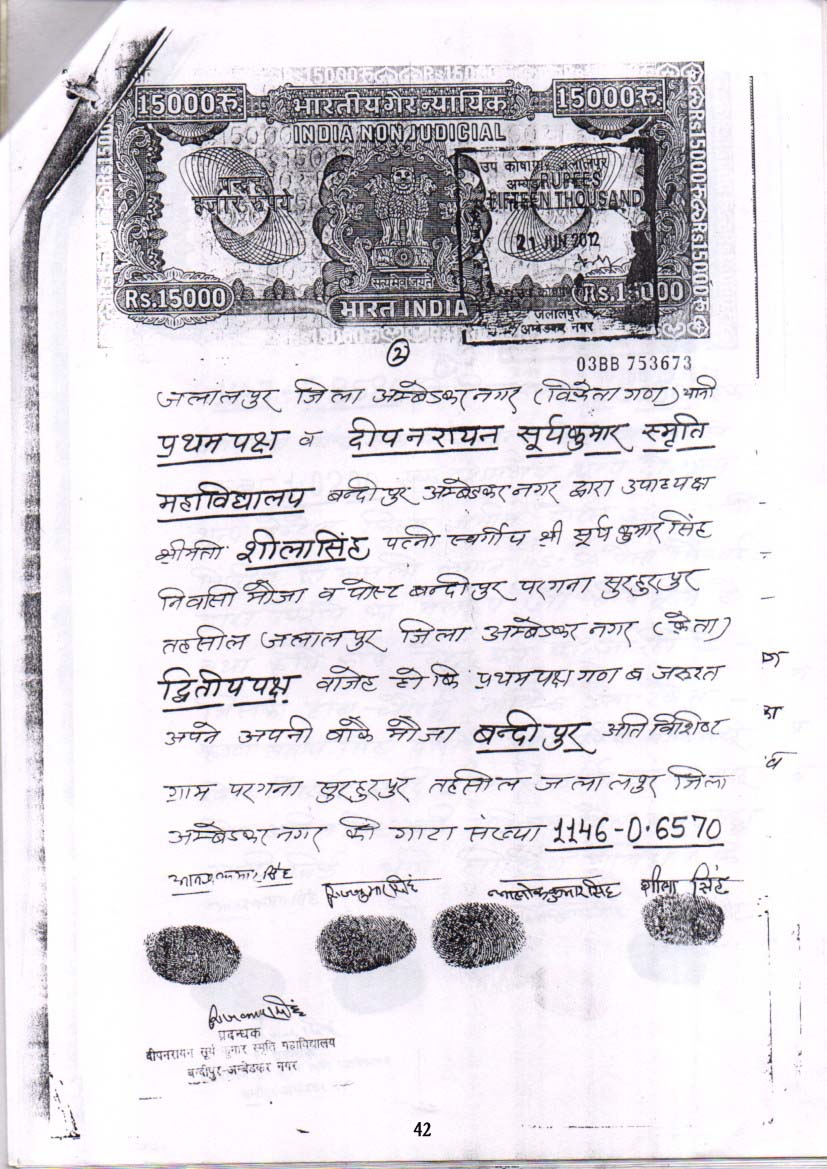 15000रु. भारतीय गैर न्यायिक 15000रु.
INDIA NON JUDICIAL
पन्द्रह
हज़ार रुपये
उप कोषागार जलालपुर
RUPEES
FIFTEEN THOUSAND
21 JUN 2012
सत्यमेव जयते
Rs.15000 भारत INDIA Rs.15000
जलालपुर
अम्बेडकर नगर
2
03BB 753673
जलालपुर जिला अम्बेडकर नगर (विक्रेता गण) यानी
प्रथम पक्ष व दीपनरायन सूर्यकुमार स्मृति
महाविद्यालय बन्दीपुर अम्बेडकर नगर द्वारा उपाध्यक्ष
श्रीमती शीला सिंह पत्नी स्वर्गीय श्री सूर्य कुमार सिंह
निवासी मौजा व पोस्ट बन्दीपुर परगना सुरहुरपुर
तहसील जलालपुर जिला अम्बेडकर नगर (क्रेता)
द्वितीय पक्ष वाजेह हो कि प्रथम पक्ष गण ब जरुरत
अपने अपनी बाकै मौजा बन्दीपुर अतिविशिष्ट
ग्राम परगना सुरहुरपुर तहसील जलालपुर जिला
अम्बेडकर नगर की गाटा संख्या 1146-0.6570
आलोक कुमार सिंह शीला सिंह
प्रबन्धक
दीपनरायन सूर्य कुमार स्मृति महाविद्यालय
बन्दीपुर-अम्बेडकर नगर
42